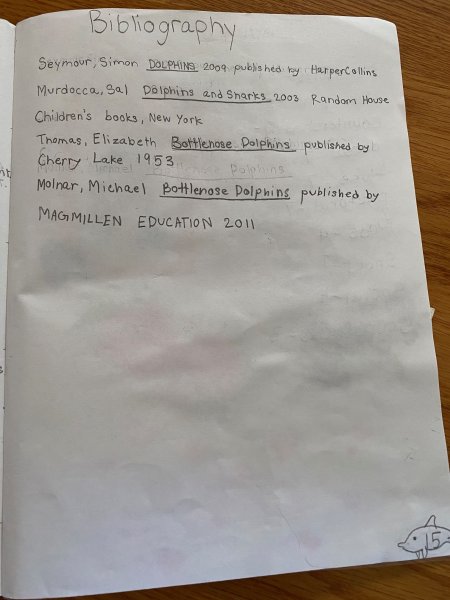 Bibliography
Seymour, Simon DOLPHINS 2009 published by HarperCollins
Murdocca, Sal Dolphins and Sharks 2003 Random House
Children's books, New York
Thomas, Elizabeth Bottlenose Dolphins published by
Cherry Lake 1953
Molnar, Michael Bottlenose Dolphins published by
MAGMILLEN EDUCATION 2011
15